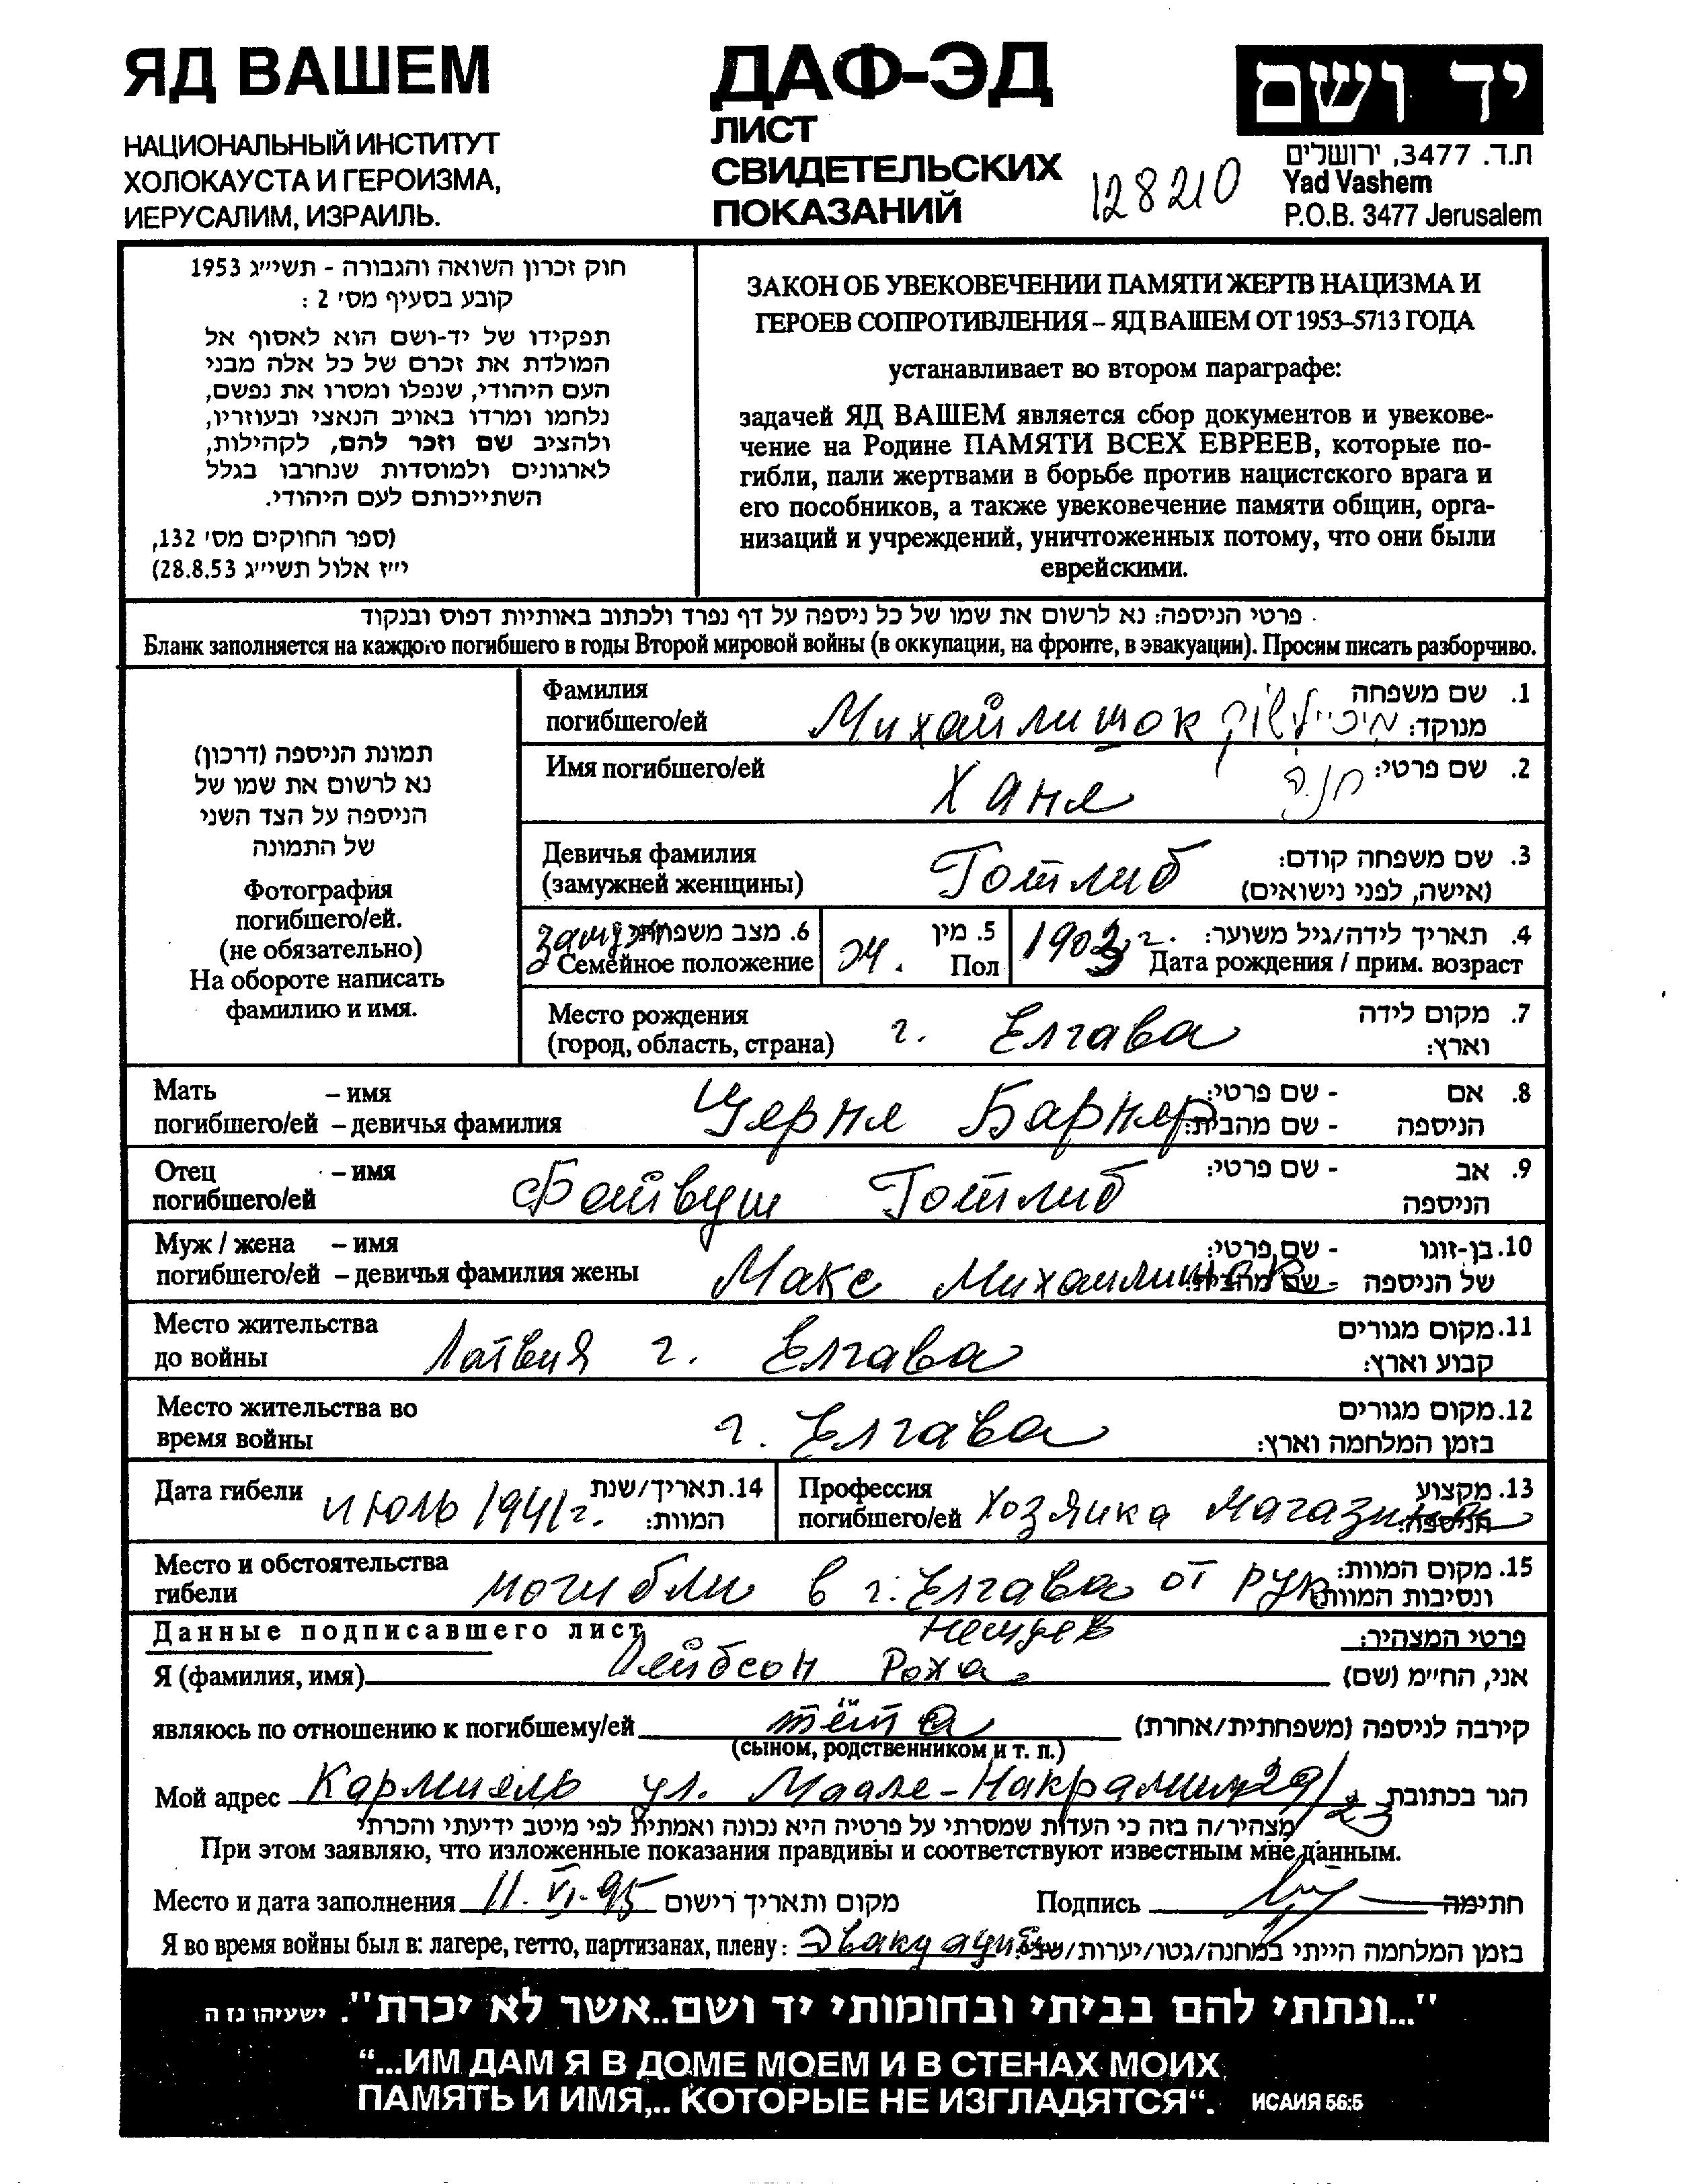 ЯД ВАШЕМ
НАЦИОНАЛЬНЫЙ ИНСТИТУТ
ХОЛОКАУСТА И ГЕРОИЗМА,
ИЕРУСАЛИМ, ИЗРАИЛЬ.
ДАФ-ЭД
ЛИСТ
СВИДЕТЕЛЬСКИХ
ПОКАЗАНИЙ
128210
יד ושם
ת.ד. 3477, ירושלים
Yad Vashem
P.O.B. 3477 Jerusalem
חוק זכרון השואה והגבורה - תשי״ג 1953
קובע בסעיף מס׳ 2 :
תפקידו של יד-ושם הוא לאסוף אל
המולדת את זכרם של כל אלה מבני
העם היהודי, שנפלו ומסרו את נפשם,
נלחמו ומרדו באויב הנאצי ובעוזריו,
ולהציב שם וזכר להם, לקהילות,
לארגונים ולמוסדות שנחרבו בגלל
השתייכותם לעם היהודי.
(ספר החוקים מס׳ 132,
י״ז אלול תשי״ג 28.8.53)
ЗАКОН ОБ УВЕКОВЕЧЕНИИ ПАМЯТИ ЖЕРТВ НАЦИЗМА И
ГЕРОЕВ СОПРОТИВЛЕНИЯ – ЯД ВАШЕМ ОТ 1953–5713 ГОДА
устанавливает во втором параграфе:
задачей ЯД ВАШЕМ является сбор документов и увекове-
чение на Родине ПАМЯТИ ВСЕХ ЕВРЕЕВ, которые по-
гибли, пали жертвами в борьбе против нацистского врага и
его пособников, а также увековечение памяти общин, орга-
низаций и учреждений, уничтоженных потому, что они были
еврейскими.
פרטי הניספה: נא לרשום את שמו של כל ניספה על דף נפרד ולכתוב באותיות דפוס ובנקוד
Бланк заполняется на каждого погибшего в годы Второй мировой войны (в оккупации, на фронте, в эвакуации). Просим писать разборчиво.
תמונת הניספה (דרכון)
נא לרשום את שמו של
הניספה על הצד השני
של התמונה
Фотография
погибшего/ей.
(не обязательно)
На обороте написать
фамилию и имя.
Фамилия
погибшего/ей Михайлишок מיכיילישוק
1. שם משפחה
מנוקד:
Имя погибшего/ей Ханя חניה 2. שם פרטי:
Девичья фамилия
(замужней женщины) Готлиб
3. שם משפחה קודם:
(אישה, לפני נישואים)
замужем 6. מצב משפחתי
Семейное положение
ж. 5. מין
Пол
1903 г. 4. תאריך לידה/גיל משוער:
Дата рождения / прим. возраст
Место рождения
(город, область, страна) г. Елгава
7. מקום לידה
וארץ:
Мать – имя
погибшего/ей – девичья фамилия Церня Барнер
8. אם - שם פרטי:
הניספה - שם מהבית:
Отец – имя
погибшего/ей Файвуш Готлиб
9. אב - שם פרטי:
הניספה
Муж / жена – имя
погибшего/ей – девичья фамилия жены Макс Михаилишок
10. בן-זוגו - שם פרטי:
של הניספה - שם מהבית:
Место жительства
до войны Латвия г. Елгава
11. מקום מגורים
קבוע וארץ:
Место жительства во
время войны г. Елгава
12. מקום מגורים
בזמן המלחמה וארץ:
Дата гибели июль 1941 г. 14. תאריך/שנת
המוות:
Профессия
погибшего/ей хозяйка магазина
13. מקצוע
הניספה:
Место и обстоятельства
гибели погибли в г. Елгава от рук
немцев
15. מקום המוות:
ונסיבות המוות:
Данные подписавшего лист
פרטי המצהיר:
Я (фамилия, имя) Лейбсон Роха אני, החי״מ (שם)
являюсь по отношению к погибшему/ей тётя קירבה לניספה (משפחתית/אחרת)
(сыном, родственником и т. п.)
Мой адрес Кармиель ул. Маале-Накрамим 29/23 הגר בכתובת
מצהיר/ה בזה כי העדות שמסרתי על פרטיה היא נכונה ואמתית לפי מיטב ידיעתי והכרתי
При этом заявляю, что изложенные показания правдивы и соответствуют известным мне данным.
Место и дата заполнения 11.VI.95 מקום ותאריך רישום Подпись חתימה
Я во время войны был в: лагере, гетто, партизанах, плену: Эвакуации בזמן המלחמה הייתי במחנה/גטו/יערות/שבי:
"...ונתתי להם בביתי ובחומותי יד ושם..אשר לא יכרת". ישעיהו נז ה
“...ИМ ДАМ Я В ДОМЕ МОЕМ И В СТЕНАХ МОИХ
ПАМЯТЬ И ИМЯ,.. КОТОРЫЕ НЕ ИЗГЛАДЯТСЯ“. ИСАИЯ 56:5